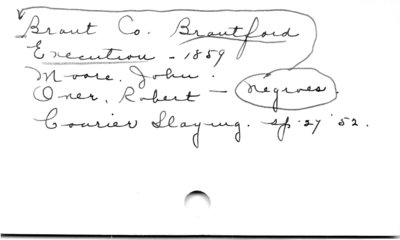 Brant Co. Brantford
Execution - 1859
Moore, John.
Over, Robert — Negroes.
Courier Slaying. sp. 27 '52.